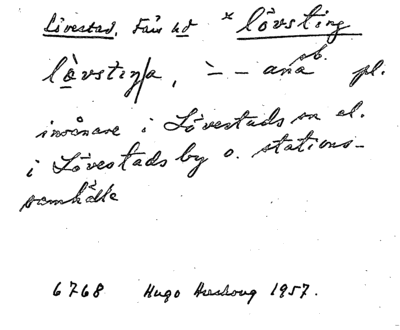 Lövestad, Färs hd × lövsting
lòvstiŋa, ∸ – ana sb. pl.
invånare i Lövestads sn el.
i Lövestads by o. stations-
samhälle
6768 Hugo Areskoug 1957.